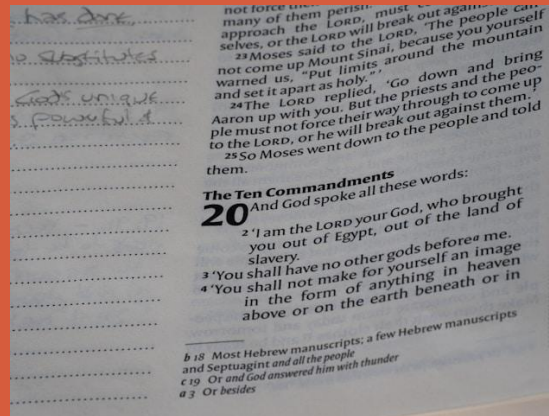 has done,
no substitutes
God's unique
powerful &
not force
many of them perish.
approach the LORD, must
selves, or the LORD will break out against
23Moses said to the LORD, 'The people can
not come up Mount Sinai, because you yourself
warned us, "Put limits around the mountain
and set it apart as holy."'
24The LORD replied, 'Go down and bring
Aaron up with you. But the priests and the peo-
ple must not force their way through to come up
to the LORD, or he will break out against them.'
25So Moses went down to the people and told
them.
The Ten Commandments
20 And God spoke all these words:
2 'I am the LORD your God, who brought
you out of Egypt, out of the land of
slavery.
3 'You shall have no other gods before a me.
4 'You shall not make for yourself an image
in the form of anything in heaven
above or on the earth beneath or in
b 18 Most Hebrew manuscripts; a few Hebrew manuscripts
and Septuagint and all the people
c 19 Or and God answered him with thunder
a 3 Or besides